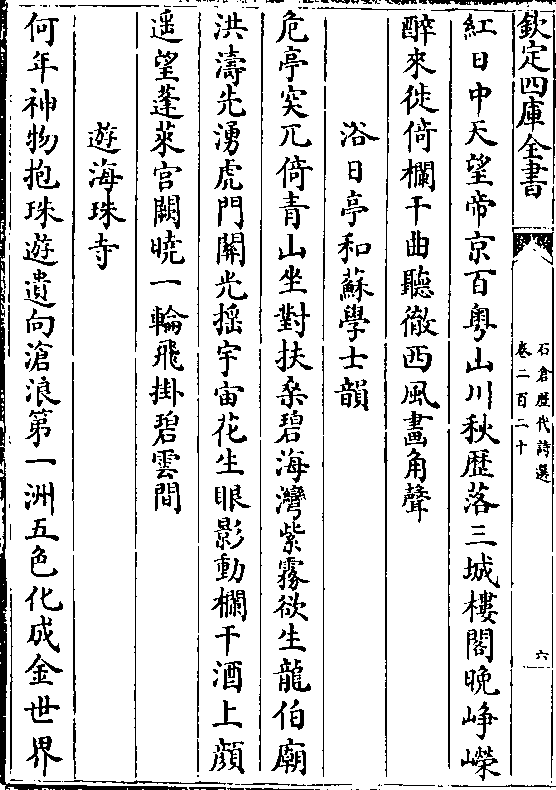 欽定四庫全書
石倉歷代詩選
卷二百二十
六
紅日中天望帝京百粵山川秋歷落三城樓閣晚崢嶸
醉來徙倚欄干曲聽徹西風畫角聲
浴日亭和蘇學士韻
危亭突兀倚青山坐對扶桑碧海灣紫霧欲生龍伯廟
洪濤先湧虎門關光搖宇宙花生眼影動欄干酒上顔
遥望蓬萊宫闕曉一輪飛掛碧雲間
遊海珠寺
何年神物抱珠遊遺向滄浪第一洲五色化成金世界